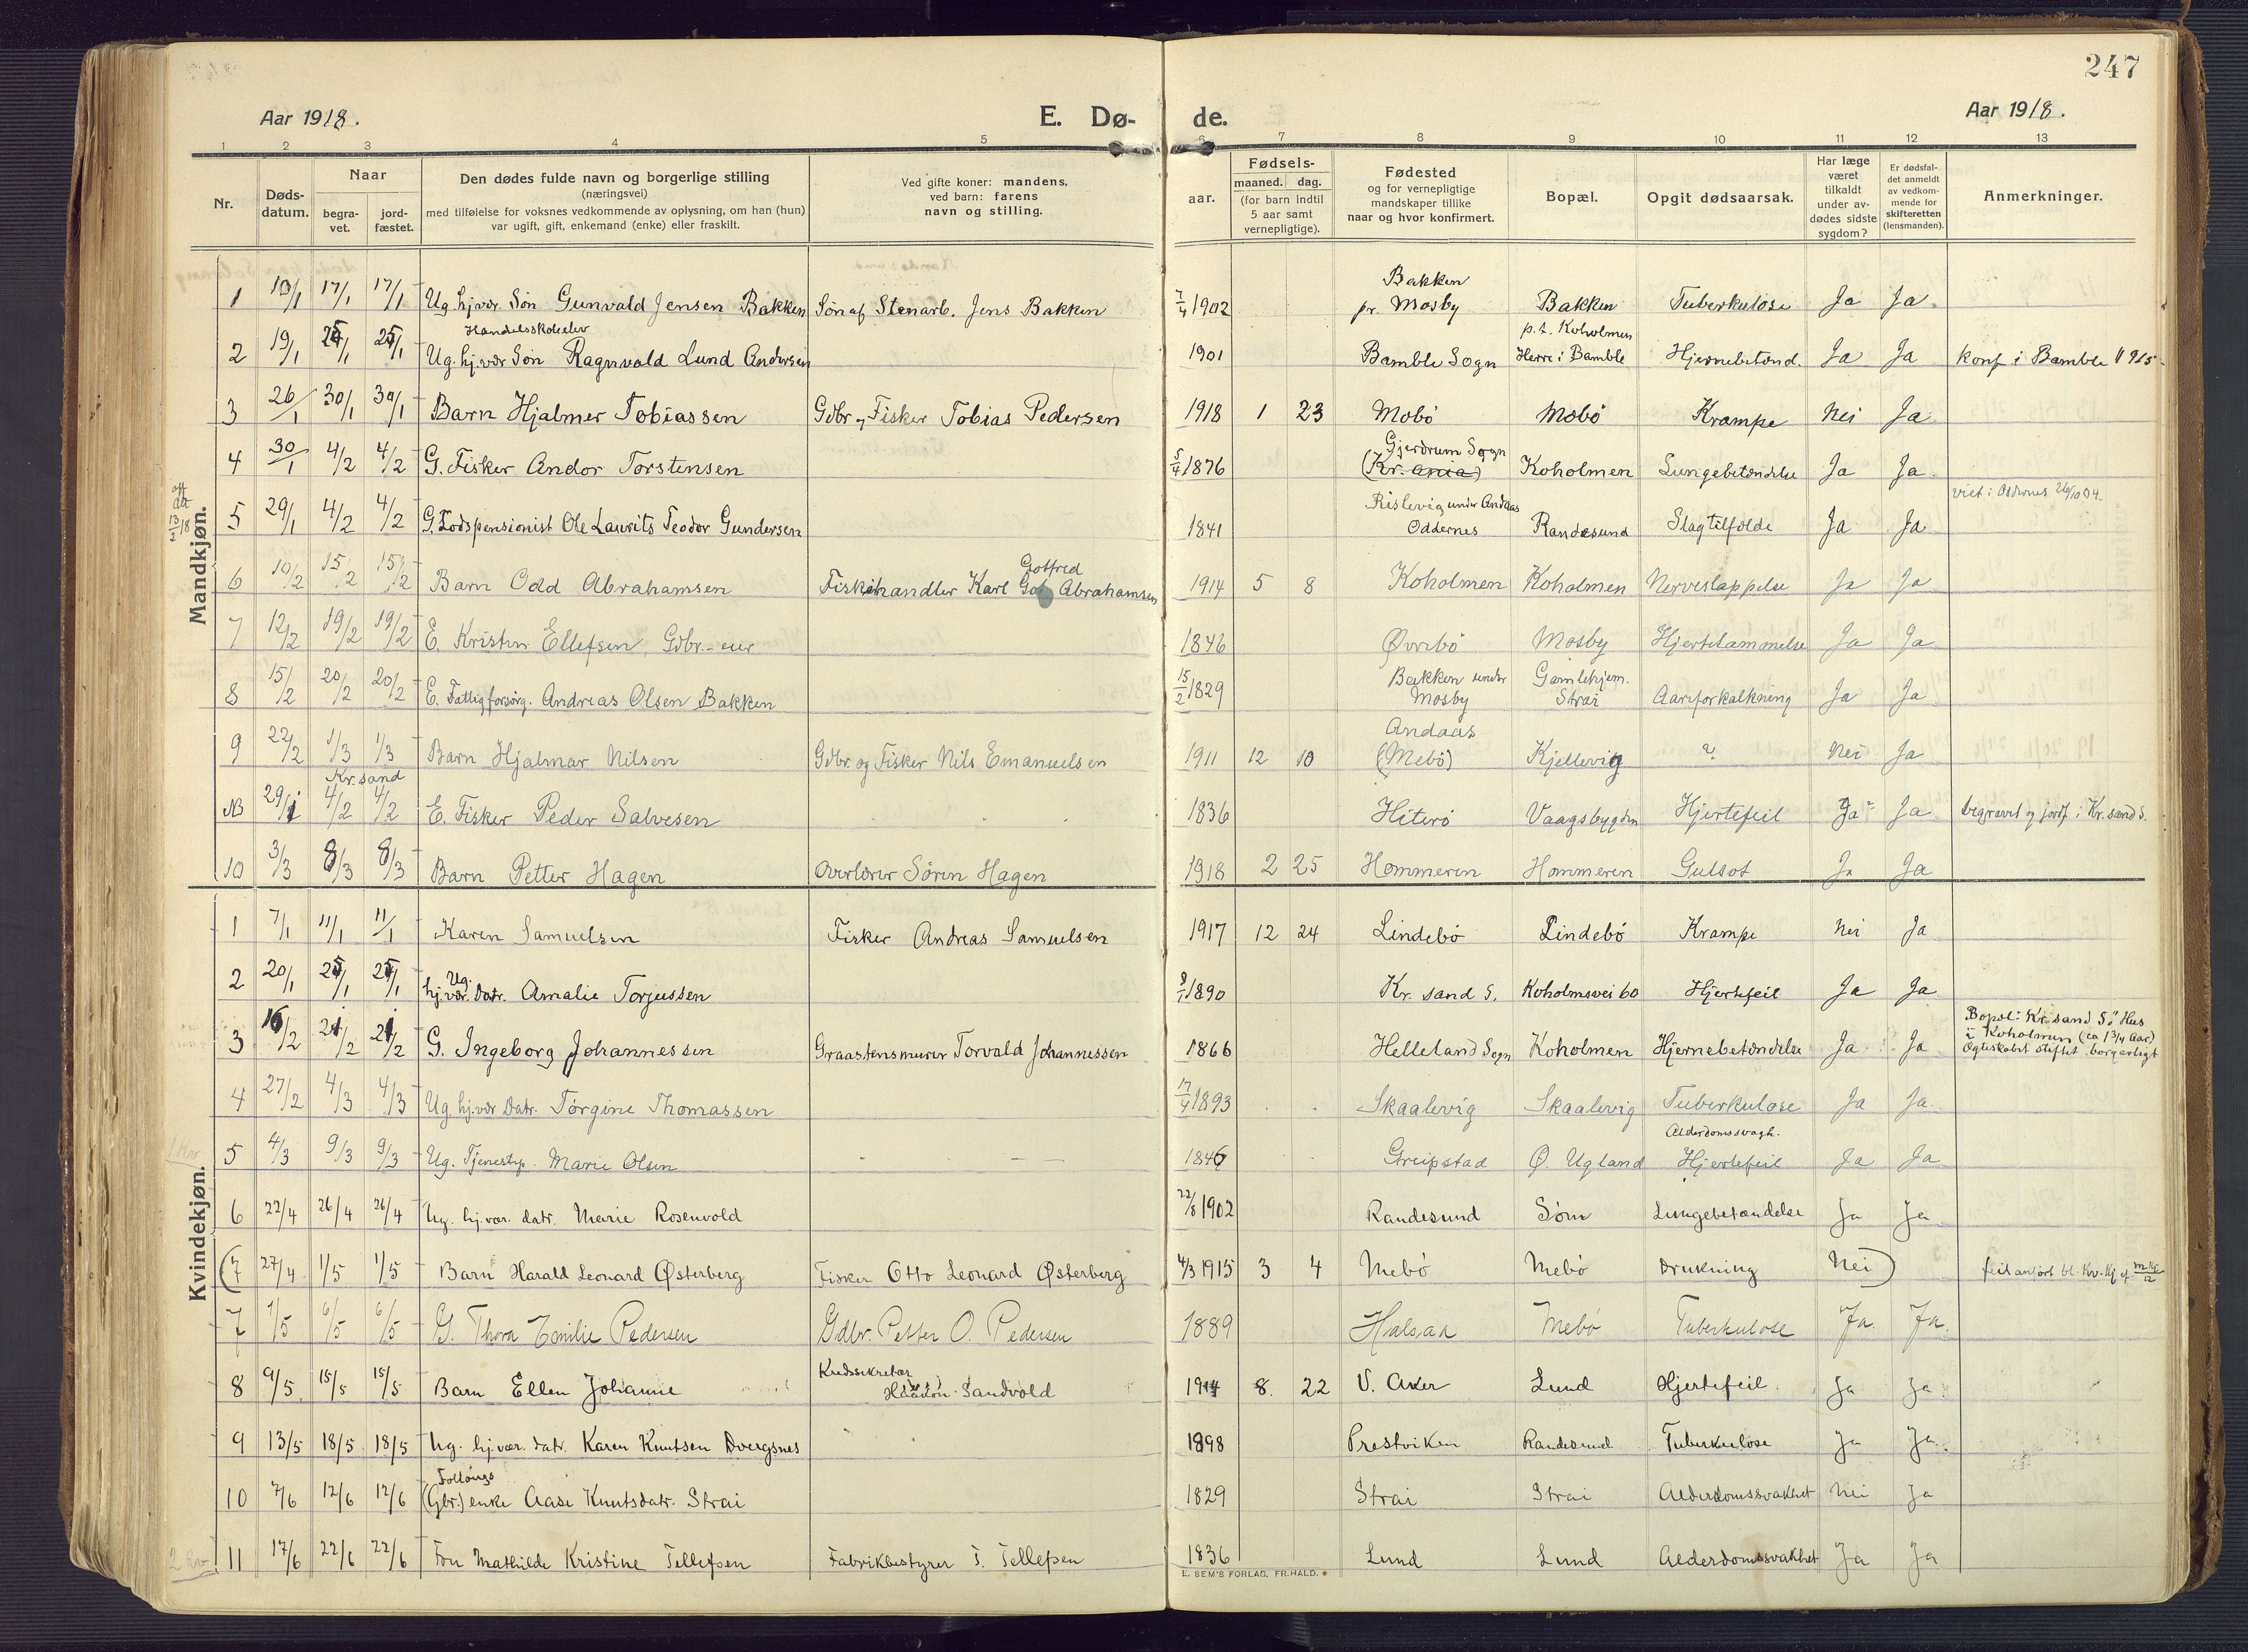 247
Aar 1918.
E. Dø-
de.
Aar 1918.
1 2 3 4 5 6 7 8 9 10 11 12 13
Nr.
Døds-
datum.
Naar
begra-
vet.
jord-
fæstet.
Den dødes fulde navn og borgerlige stilling
(næringsvei)
med tilføielse for voksnes vedkommende av oplysning, om han (hun)
var ugift, gift, enkemand (enke) eller fraskilt.
Ved gifte koner: mandens,
ved barn: farens
navn og stilling.
Fødsels-
aar.
maaned. dag.
(for barn indtil
5 aar samt
vernepligtige).
Fødested
og for vernepligtige
mandskaper tillike
naar og hvor konfirmert.
Bopæl.
Opgit dødsaarsak.
Har læge
været
tilkaldt
under av-
dødes sidste
sygdom?
Er dødsfal-
det anmeldt
av vedkom-
mende for
skifteretten
(lensmanden).
Anmerkninger.
Mandkjøn.
1 13/1 17/1 17/1 Ug. hj.vær. Søn Gunvald Jensen Bakken Søn af Stenarb. Jens Bakken 7/4 1902 Bakken pr. Mosby Bakken Tuberkulose Ja Ja
2 19/1 25/1 25/1 Handelsskoleelev Ug. hj.vær Søn Ragnvald Lund Andersen 1901 Bamble Sogn p.t. Koholmen Herre i Bamble Hjernebetænd. Ja Ja konf i Bamble 1915
3 26/1 30/1 30/1 Barn Hjalmer Tobiassen Gdbr. og Fisker Tobias Pedersen 1918 1 23 Mebö Mebö Krampe Nei Ja
4 30/1 4/2 4/2 G. Fisker Andor Torstensen 5/4 1876 Gjerdrum Sogn (Kr.ania) Koholmen Lungebetændelse Ja Ja viet i Oddernes 26/10 04.
5 29/1 4/2 4/2 G. Lodspensionist Ole Laurits Teodor Gundersen 1841 Rislevig under Andaas Oddernes Randesund Slagtilfælde Ja Ja
6 10/2 15/2 15/2 Barn Odd Abrahamsen Fiskehandler Karl Gotfred Abrahamsen 1914 5 8 Koholmen Koholmen Nerveslappelse Ja Ja
7 12/2 19/2 19/2 E. Kristen Ellefsen, Gdbr. 1846 Øvrebö Mosby Hjertelammelse Ja Ja
8 15/2 20/2 20/2 E. Fattigforsörg. Andreas Olsen Bakken 15/2 1829 Bakken under Mosby Gamlehjem. Strai Aareforkalkning Ja Ja
9 22/2 1/3 1/3 Barn Hjalmar Nilsen Gdbr. og Fisker Nils Emanuelsen 1911 12 10 Andaas (Mebö) Kjellevig ? Nei Ja
NB 29/1 Kr.sand 4/2 4/2 E. Fisker Peder Salvesen 1836 Hiterö Vaagsbygden Hjertefeil Ja Ja begravet og jordf. i Kr.sand S.
10 3/3 8/3 8/3 Barn Petter Hagen Overlærer Søren Hagen 1918 2 25 Hommeren Hommeren Gulsot Ja Ja
Kvindekjøn.
1 7/1 11/1 11/1 Karen Samuelsen Fisker Andreas Samuelsen 1917 12 24 Lindebö Lindebö Krampe Nei Ja
2 20/1 25/1 25/1 Ug. hj.vær. Datr. Amalie Torjussen 1890 Kr. sand S. Koholmsvei 60 Hjertefeil Ja Ja
3 16/2 21/2 21/2 G. Ingeborg Johannessen Graastensmurer Torvald Johannessen 1866 Helleland Sogn Koholmen Hjernebetændelse Ja Ja Bopæl: Kr.sand S. Hus i Koholmen (ca 1 3/4 Aar) Egteskabet stiftet borgerligt
4 27/2 4/3 4/3 Ug. hj.vær Datr. Törgine Thomassen 17/4 1893 Skaalevig Skaalevig Tuberkulose Ja Ja
5 4/3 9/3 9/3 Ug. Tjenestep. Marie Olsen 1846 Greipstad Ø. Ugland Alderdomssvagh. Hjertefeil Ja Ja
6 22/4 26/4 26/4 Ug. hj.vær. datr. Marie Rosenvold 22/8 1902 Randesund Söm Lungebetændelse Ja Ja
(7 27/4 1/5 1/5 Barn Harald Leonard Østerberg Fisker Otto Leonard Østerberg 4/3 1915 3 4 Mebö Mebö Drukning Nei) feil anfört bl. Kv.kj.
7 1/5 6/5 6/5 G. Thora Emilie Pedersen Gdbr. Petter O. Pedersen 1889 Halsaa Mebö Tuberkulose Ja. Ja.
8 9/5 15/5 15/5 Barn Ellen Johanne Kredssekretær Haakon Sandvold 8. 22 V. Aker Lund Hjertefeil Ja Ja
9 13/5 18/5 18/5 Ug. hj.vær. datr. Karen Knutsen Dvergsnes 1898 Prestviken Randesund Tuberkulose Ja Ja.
10 7/6 12/6 12/6 (Gbr.) enke Aase Knutsdatr. Strai 1829 Strai Strai Alderdomssvakhet Nei Ja
11 17/6 22/6 22/6 Fru Mathilde Kristine Tellefsen Fabrikbestyrer T. Tellefsen 1836 Lund Lund Alderdomssvakhet Ja Ja
E. SEM'S FORLAG, FR.HALD.